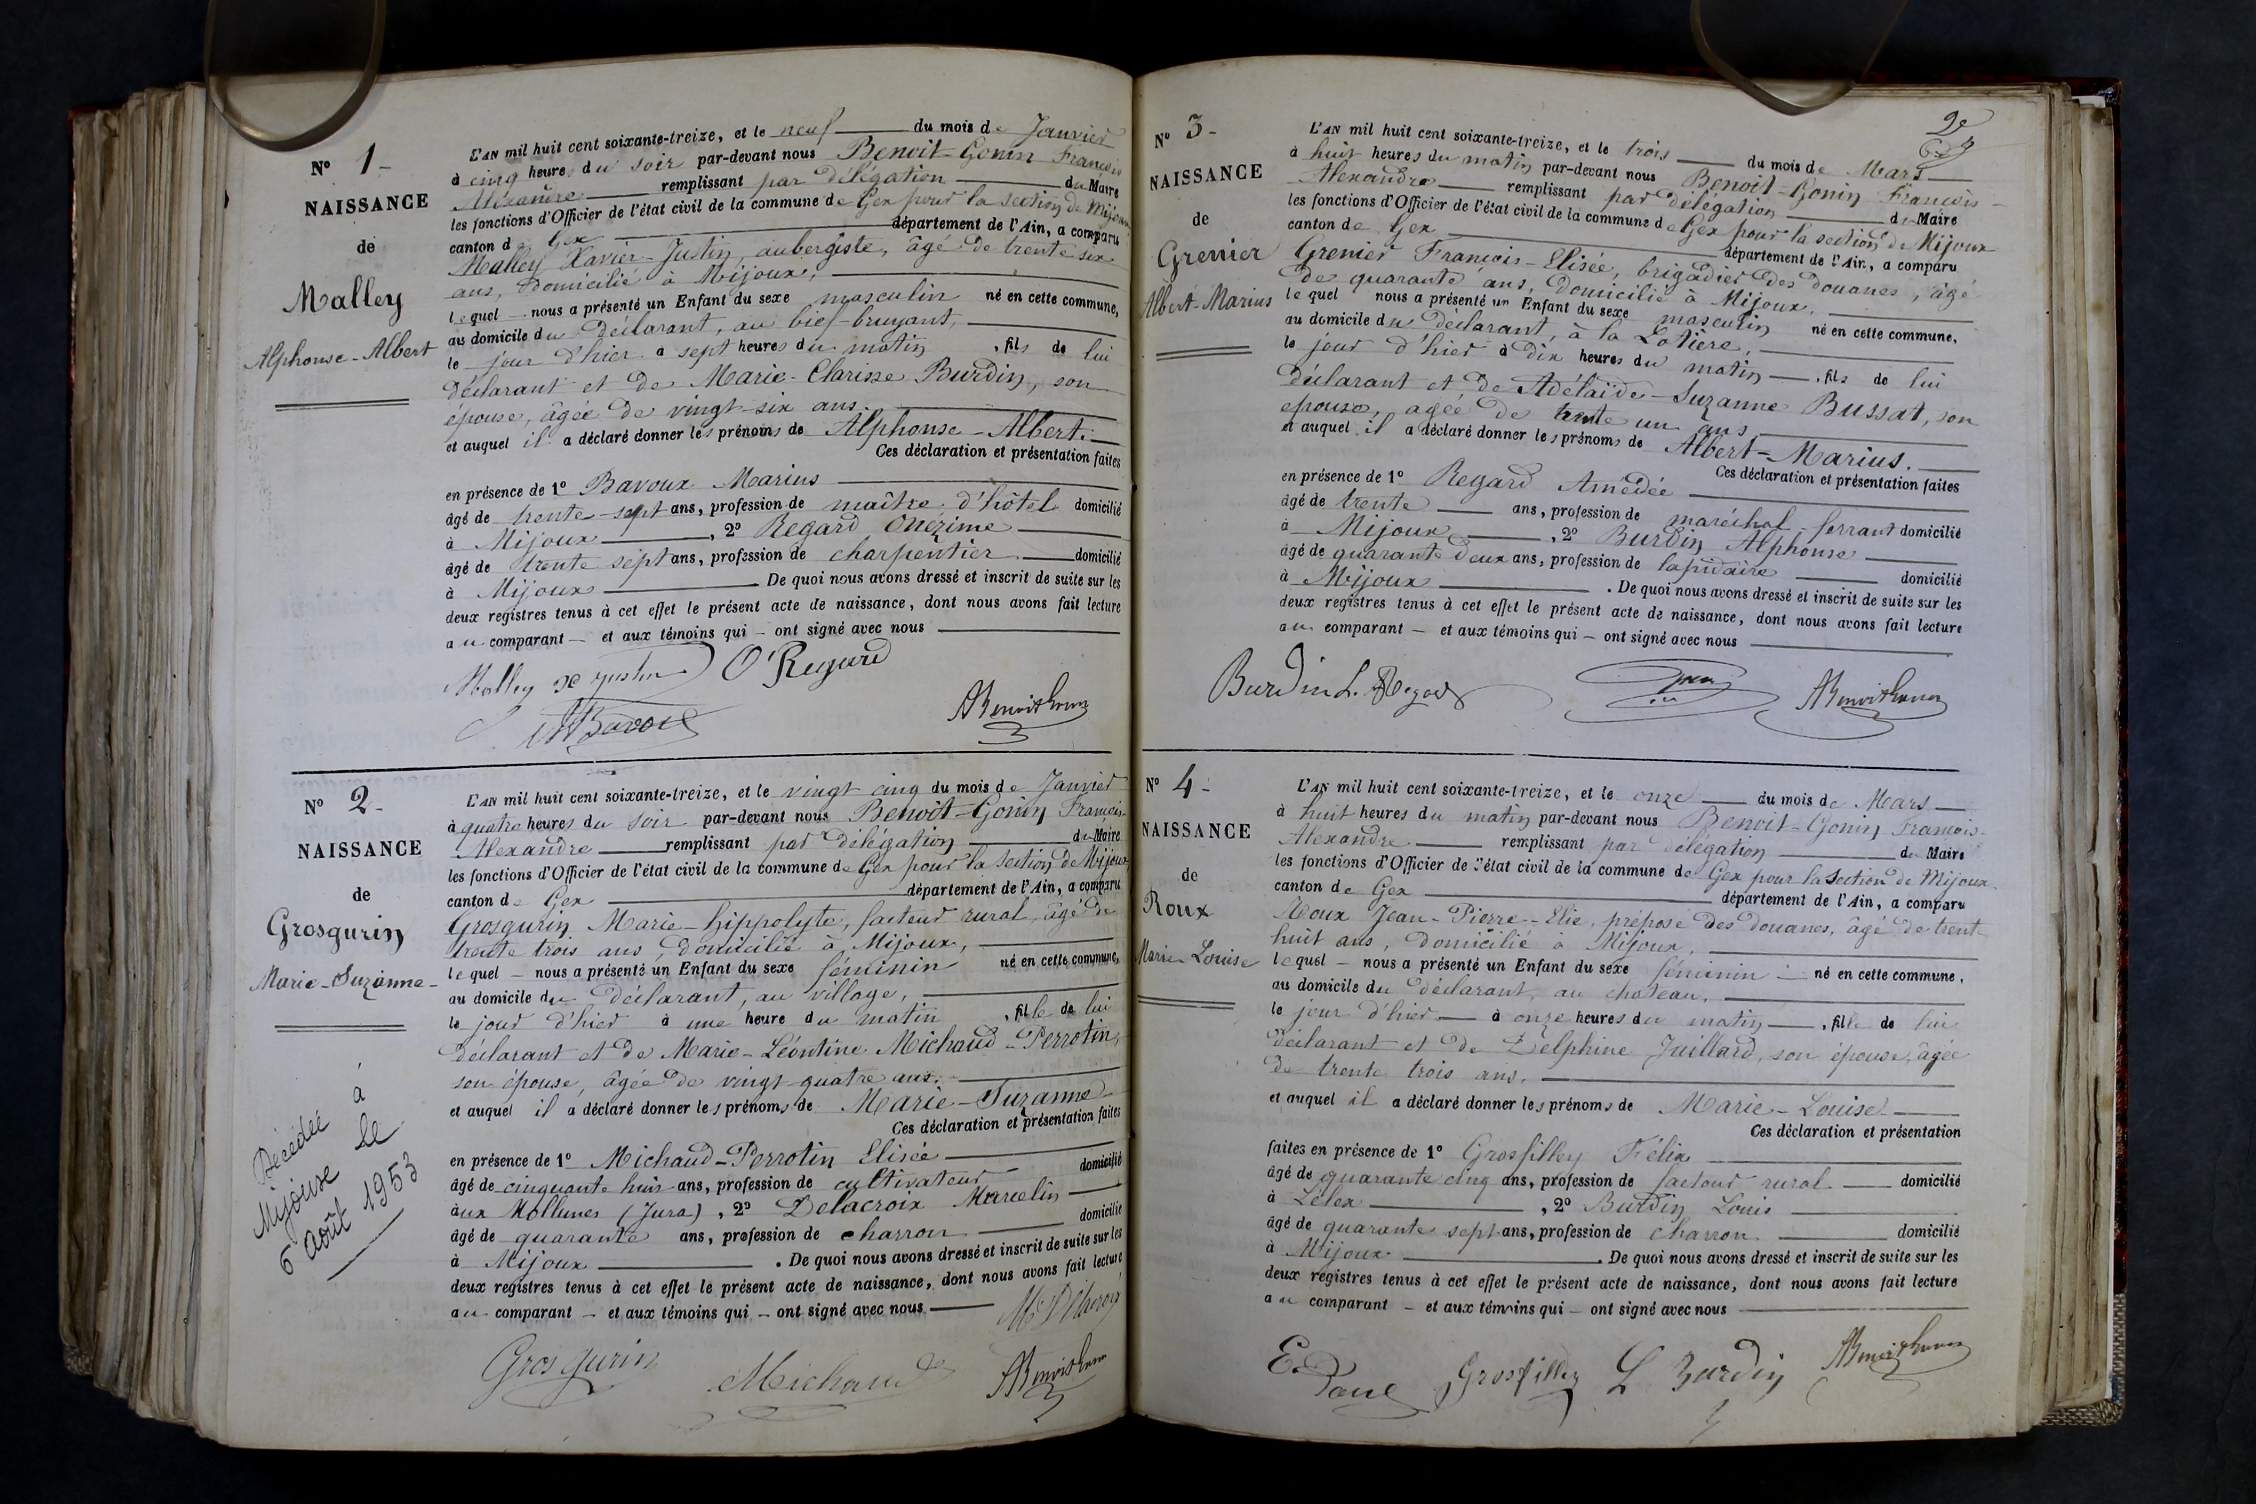 N° 1-
NAISSANCE
de
Malley
Alphonse-Albert
L'AN mil huit cent soixante-treize, et le neuf du mois de Janvier
à cinq heures du soir par-devant nous Benoit-Gonin François
Alexandre remplissant par délégation du Maire
les fonctions d'Officier de l'état civil de la commune de Gex pour la section de Mijoux
canton de Gex département de l'Ain, a comparu
Malley Xavier-Justin, aubergiste, âgé de trente six
ans, domicilié à Mijoux,
lequel nous a présenté un Enfant du sexe masculin né en cette commune,
au domicile du déclarant, au bief-bruyant,
le jour d'hier à sept heures du matin, fils de lui
déclarant et de Marie-Clarisse Burdin, son
épouse, âgée de vingt-six ans.
et auquel il a déclaré donner les prénoms de Alphonse-Albert.
Ces déclaration et présentation faites
en présence de 1° Bavoux Marius
âgé de trente-sept ans, profession de maître d'hôtel domicilié
à Mijoux, 2° Regard Onezime
âgé de trente sept ans, profession de charpentier domicilié
à Mijoux. De quoi nous avons dressé et inscrit de suite sur les
deux registres tenus à cet effet le présent acte de naissance, dont nous avons fait lecture
au comparant et aux témoins qui ont signé avec nous
Malley x justin O'Regard
Bavoux ABenoitGonin
N° 2-
NAISSANCE
de
Grosgurin
Marie-Suzanne-
Décédée à
Mijoux le
6 août 1953
L'AN mil huit cent soixante-treize, et le vingt cinq du mois de Janvier
à quatre heures du soir par-devant nous Benoit-Gonin François-
Alexandre remplissant par délégation du Maire
les fonctions d'Officier de l'état civil de la commune de Gex pour la section de Mijoux
canton de Gex département de l'Ain, a comparu
Grosgurin, Marie-hippolyte, facteur rural, âgé de
trente trois ans, domicilié à Mijoux,
lequel nous a présenté un Enfant du sexe féminin né en cette commune,
au domicile du déclarant, au village,
le jour d'hier à une heure du matin, fille de lui
déclarant et de Marie-Léontine Michaud-Perrotin,
son épouse, âgée de vingt-quatre ans.
et auquel il a déclaré donner les prénoms de Marie-Suzanne
Ces déclaration et présentation faites
en présence de 1° Michaud-Perrotin Elisée
âgé de cinquante huit ans, profession de cultivateur domicilié
aux Mollunes (Jura), 2° Delacroix Marcelin
âgé de quarante ans, profession de charron domicilié
à Mijoux. De quoi nous avons dressé et inscrit de suite sur les
deux registres tenus à cet effet le présent acte de naissance, dont nous avons fait lecture
au comparant et aux témoins qui ont signé avec nous
Grosgurin Michaud ABenoitGonin
2e
N° 3-
NAISSANCE
de
Grenier
Albert-Marius
L'AN mil huit cent soixante-treize, et le trois du mois de Mars
à huit heures du matin par-devant nous Benoit-Gonin François-
Alexandre remplissant par délégation du Maire
les fonctions d'Officier de l'état civil de la commune de Gex pour la section de Mijoux
canton de Gex département de l'Ain, a comparu
Grenier François-Elisée, brigadier des douanes, âgé
de quarante ans, domicilié à Mijoux,
lequel nous a présenté un Enfant du sexe masculin né en cette commune,
au domicile du déclarant, à la Latière,
le jour d'hier à dix heures du matin, fils de lui
déclarant et de Adélaïde-Suzanne Bussat, son
épouse, âgée de trente un ans
et auquel il a déclaré donner les prénoms de Albert-Marius.
Ces déclaration et présentation faites
en présence de 1° Regard Amédée
âgé de trente ans, profession de maréchal-ferrant domicilié
à Mijoux, 2° Burdin Alphonse
âgé de quarante deux ans, profession de lapidaire domicilié
à Mijoux. De quoi nous avons dressé et inscrit de suite sur les
deux registres tenus à cet effet le présent acte de naissance, dont nous avons fait lecture
au comparant et aux témoins qui ont signé avec nous
Burdin A. Regard ABenoitGonin
N° 4-
NAISSANCE
de
Roux
Marie Louise
L'AN mil huit cent soixante-treize, et le onze du mois de Mars
à huit heures du matin par-devant nous Benoit-Gonin François-
Alexandre remplissant par délégation du Maire
les fonctions d'Officier de l'état civil de la commune de Gex pour la section de Mijoux
canton de Gex département de l'Ain, a comparu
Roux Jean-Pierre-Elie, préposé des douanes, âgé de trente
huit ans, domicilié à Mijoux,
lequel nous a présenté un Enfant du sexe féminin né en cette commune,
au domicile du déclarant, au chateau,
le jour d'hier à onze heures du matin, fille de lui
déclarant et de Delphine Juillard, son épouse, âgée
de trente trois ans.
et auquel il a déclaré donner les prénoms de Marie-Louise
Ces déclaration et présentation
faites en présence de 1° Grosfilley Félix
âgé de quarante cinq ans, profession de facteur rural domicilié
à Lélex, 2° Burdin Louis
âgé de quarante sept ans, profession de charron domicilié
à Mijoux. De quoi nous avons dressé et inscrit de suite sur les
deux registres tenus à cet effet le présent acte de naissance, dont nous avons fait lecture
au comparant et aux témoins qui ont signé avec nous
Grosfilley L Burdin ABenoitGonin